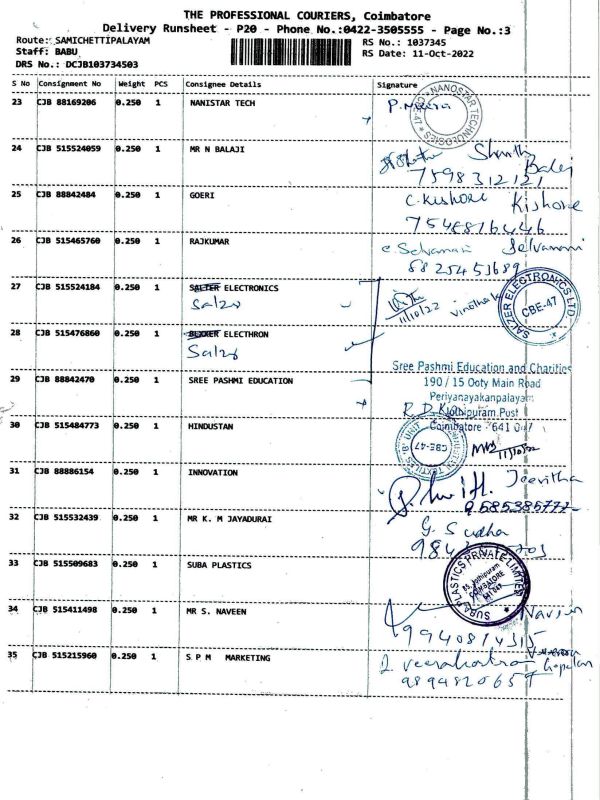 THE PROFESSIONAL COURIERS, Coimbatore
Delivery Runsheet - P20 - Phone No.:0422-3505555 - Page No.:3
Route: SAMICHETTIPALAYAM
Staff: BABU
DRS No.: DCJB103734503
RS No.: 1037345
RS Date: 11-Oct-2022
S No Consignment No Weight PCS Consignee Details Signature
23 CJB 88169206 0.250 1 NANISTAR TECH
NANOSTAR TECHNOLOGIES
24 CJB 515524059 0.250 1 MR N BALAJI
Balaji
7598312121
25 CJB 88842484 0.250 1 GOERI
C. Kishore Kishore
7548816446
26 CJB 515465760 0.250 1 RAJKUMAR
Selvamani
8825453689
27 CJB 515524184 0.250 1 SALTER ELECTRONICS
Salzo
11/10/22
SALZER ELECTRONICS LTD
CBE-47
28 CJB 515476860 0.250 1 ELECTHRON
29 CJB 88842470 0.250 1 SREE PASHMI EDUCATION
Sree Pashmi Education and Charities
190 / 15 Ooty Main Road
Periyanayakanpalayam
Jothipuram Post
Coimbatore 641 047
30 CJB 515484773 0.250 1 HINDUSTAN
CBE-47
11/10/22
31 CJB 88886154 0.250 1 INNOVATION
Jeevitha
32 CJB 515532439 0.250 1 MR K. M JAYADURAI
G. Sudha
33 CJB 515509683 0.250 1 SUBA PLASTICS
SUBA PLASTICS PRIVATE LIMITED
COIMBATORE
34 CJB 515411498 0.250 1 MR S. NAVEEN
9940814315
35 CJB 515215960 0.250 1 S P M MARKETING
9894820659